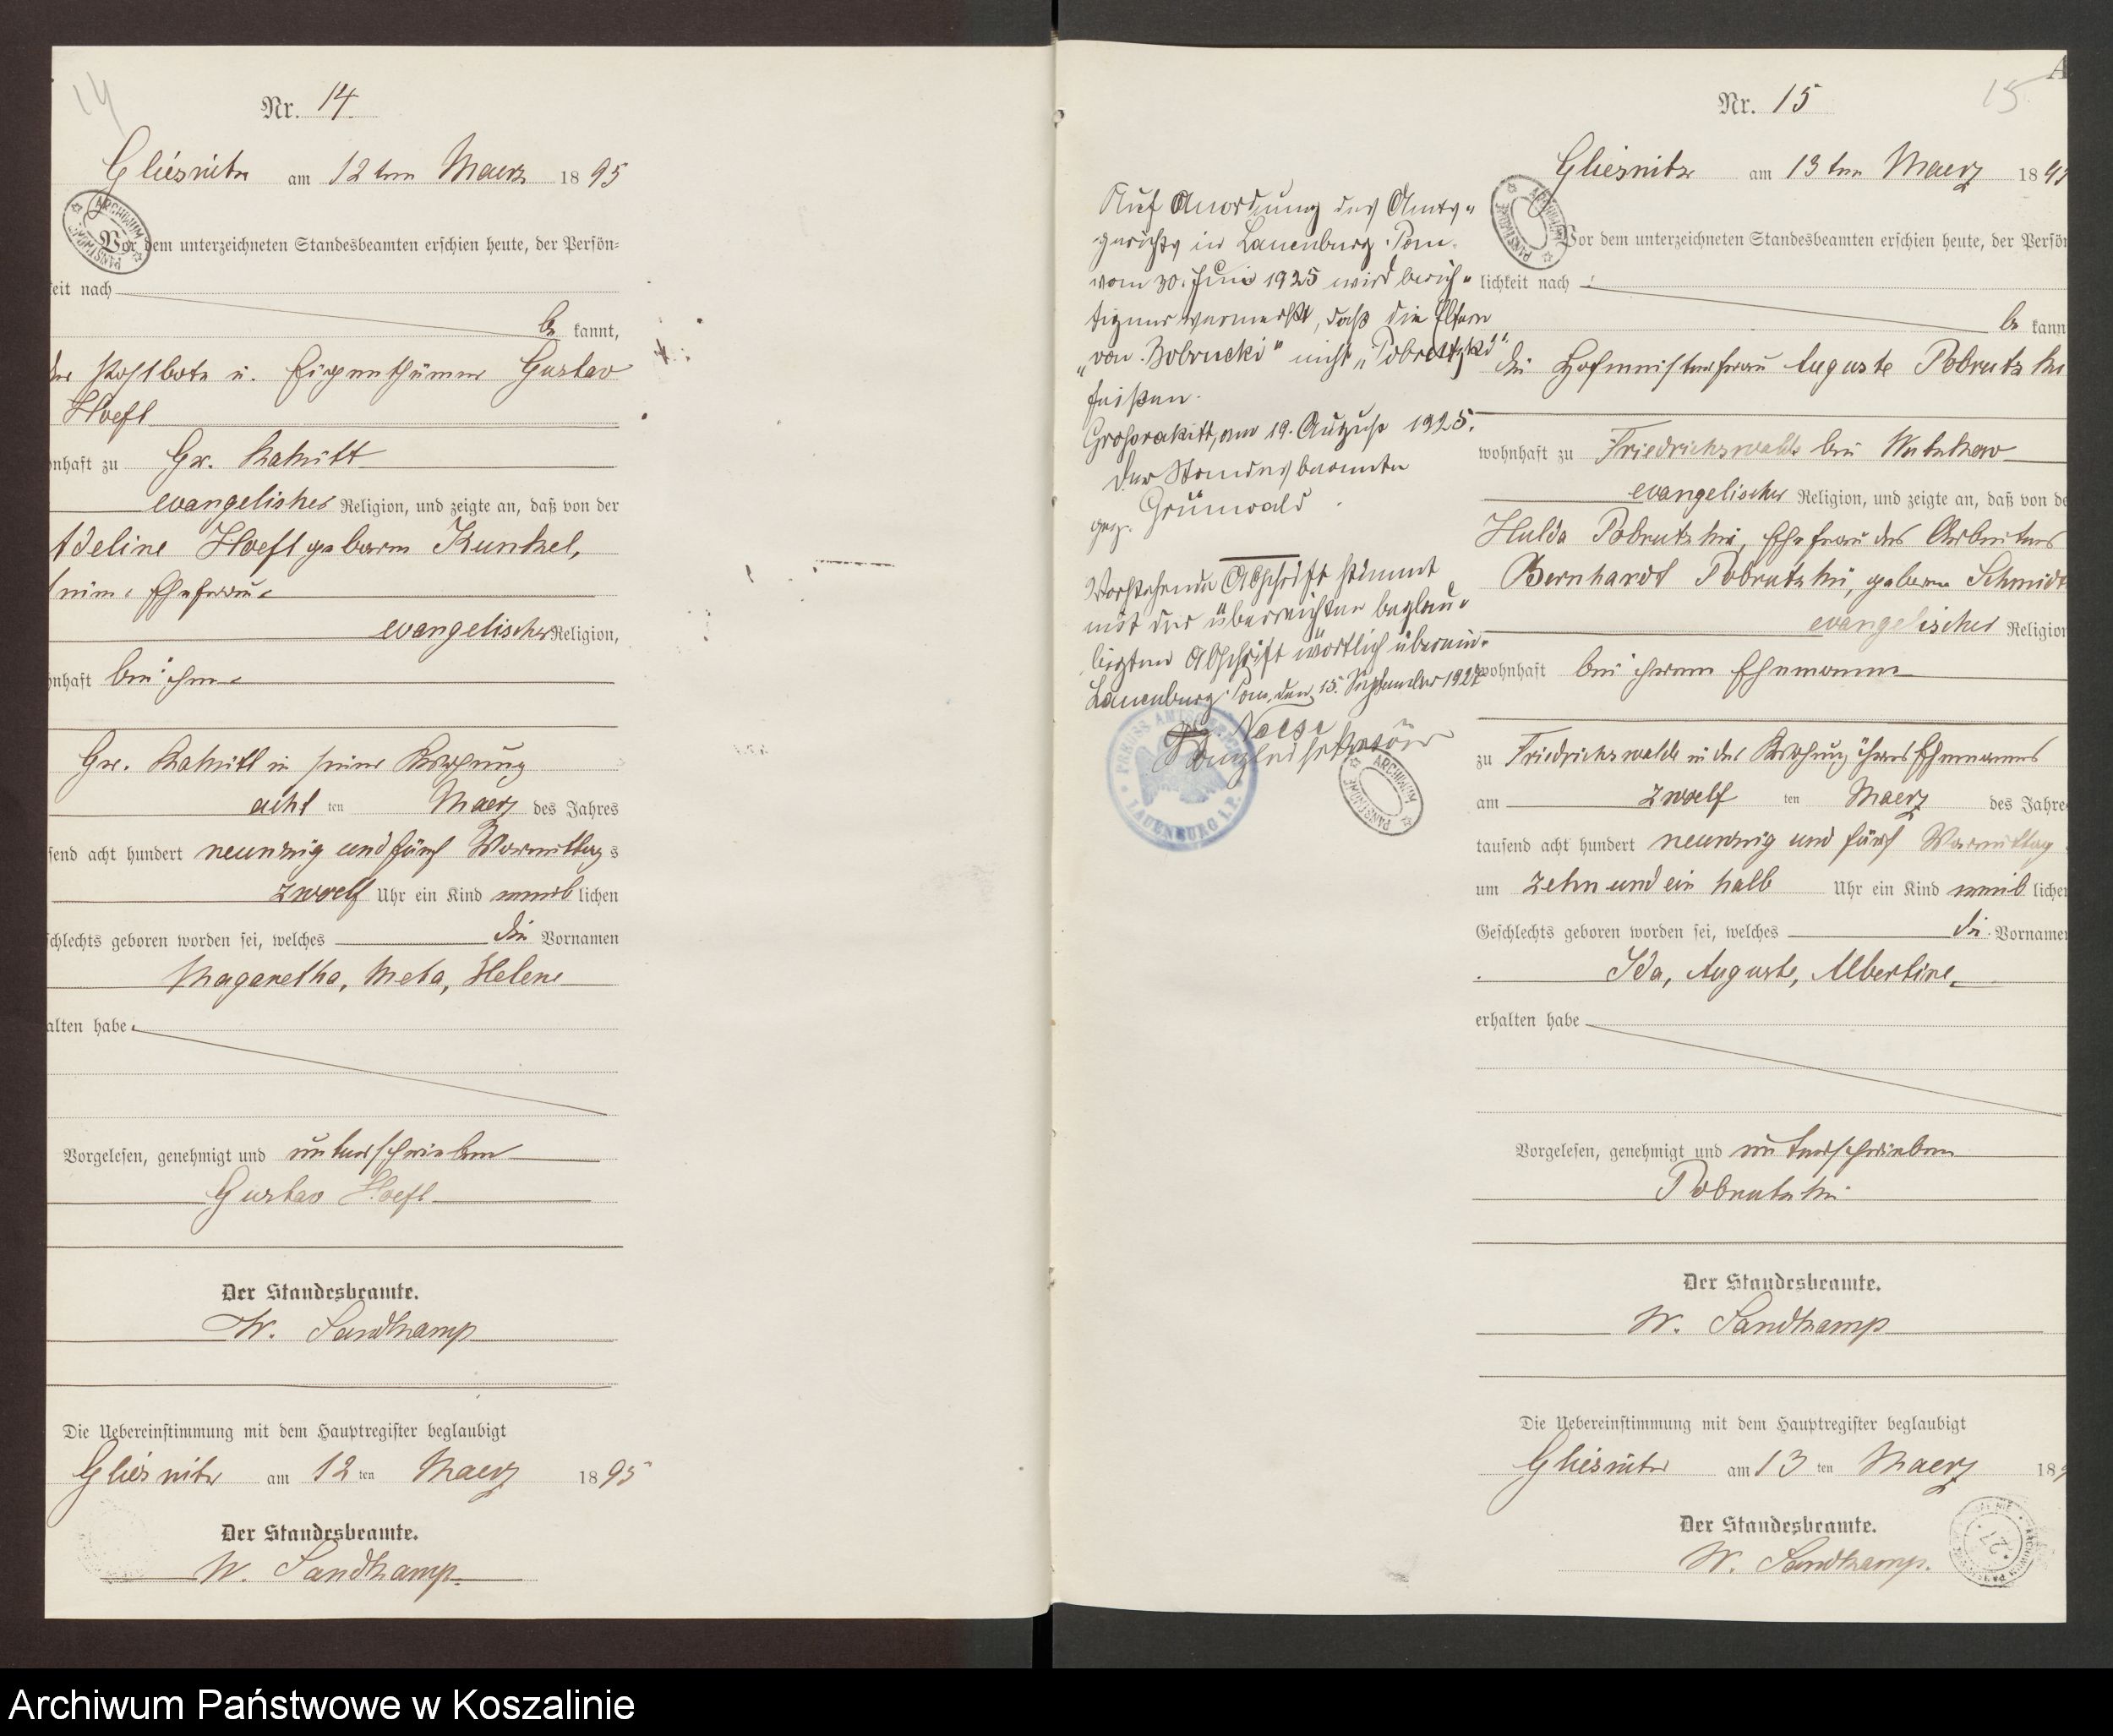 14
Nr. 14.
Gliesnitz am 12ten Maerz 1895
Vor dem unterzeichneten Standesbeamten erschien heute, der Persön=
eit nach
be kannt,
der Postbote u. Eigenthümer Gustav
Hoeft
nhaft zu Gr. Rakitt
evangelischer Religion, und zeigte an, daß von der
Adeline Hoeft geboren Kunkel,
seine Ehefrau
evangelischer Religion,
nhaft bei ihm
Gr. Rakitt in seiner Wohnung
acht ten Maerz des Jahres
send acht hundert neunzig und fünf Vormittags
zwoelf Uhr ein Kind weiblichen
schlechts geboren worden sei, welches die Vornamen
Magaretha, Meta, Helene
alten habe
Vorgelesen, genehmigt und unterschrieben
Gustav Hoeft
Der Standesbeamte.
W. Sandkamp
Die Uebereinstimmung mit dem Hauptregister beglaubigt
Gliesnitz am 12 ten Maerz 1895
Der Standesbeamte.
W. Sandkamp.
Auf Anordnung des Amts-
gerichts in Lauenburg Pom.
vom 30. Juni 1925 wird berich-
tigend vermerkt, daß die Eltern
„von Bobrucki" nicht „Pobrutzki"
heißen.
Großrakitt, am 19. August 1925.
Der Standesbeamte
gez. Grünwald
Vorstehende Abschrift stimmt
mit der überreichten beglau-
bigten Abschrift wörtlich überein.
Lauenburg Pom, den 15. September 192
Kanzleisekretär
PREUSS AMTSGERICHT
LAUENBURG i. P.
ARCHIWUM PAŃSTWOWE
15
Nr. 15
Gliesnitz am 13ten Maerz 189
Vor dem unterzeichneten Standesbeamten erschien heute, der Persön
lichkeit nach
be kann
die Hofmeisterfrau Auguste Pobrutzki
wohnhaft zu Friedrichswalde bei Wutzkow
evangelischer Religion, und zeigte an, daß von de
Hulda Pobrutzki, Ehefrau des Arbeiters
Bernhardt Pobrutzki, geboren Schmidt
evangelischer Religion
wohnhaft bei ihrem Ehemann
zu Friedrichswalde in der Wohnung ihres Ehemannes
am zwoelf ten Maerz des Jahre
tausend acht hundert neunzig und fünf Vormittag
um zehn und ein halb Uhr ein Kind weiblichen
Geschlechts geboren worden sei, welches die Vornamen
Ida, Auguste, Albertine,
erhalten habe
Vorgelesen, genehmigt und unterschrieben
Pobrutzki
Der Standesbeamte.
W. Sandkamp
Die Uebereinstimmung mit dem Hauptregister beglaubigt
Gliesnitz am 13 ten Maerz 189
Der Standesbeamte.
W. Sandkamp.
Archiwum Państwowe w Koszalinie